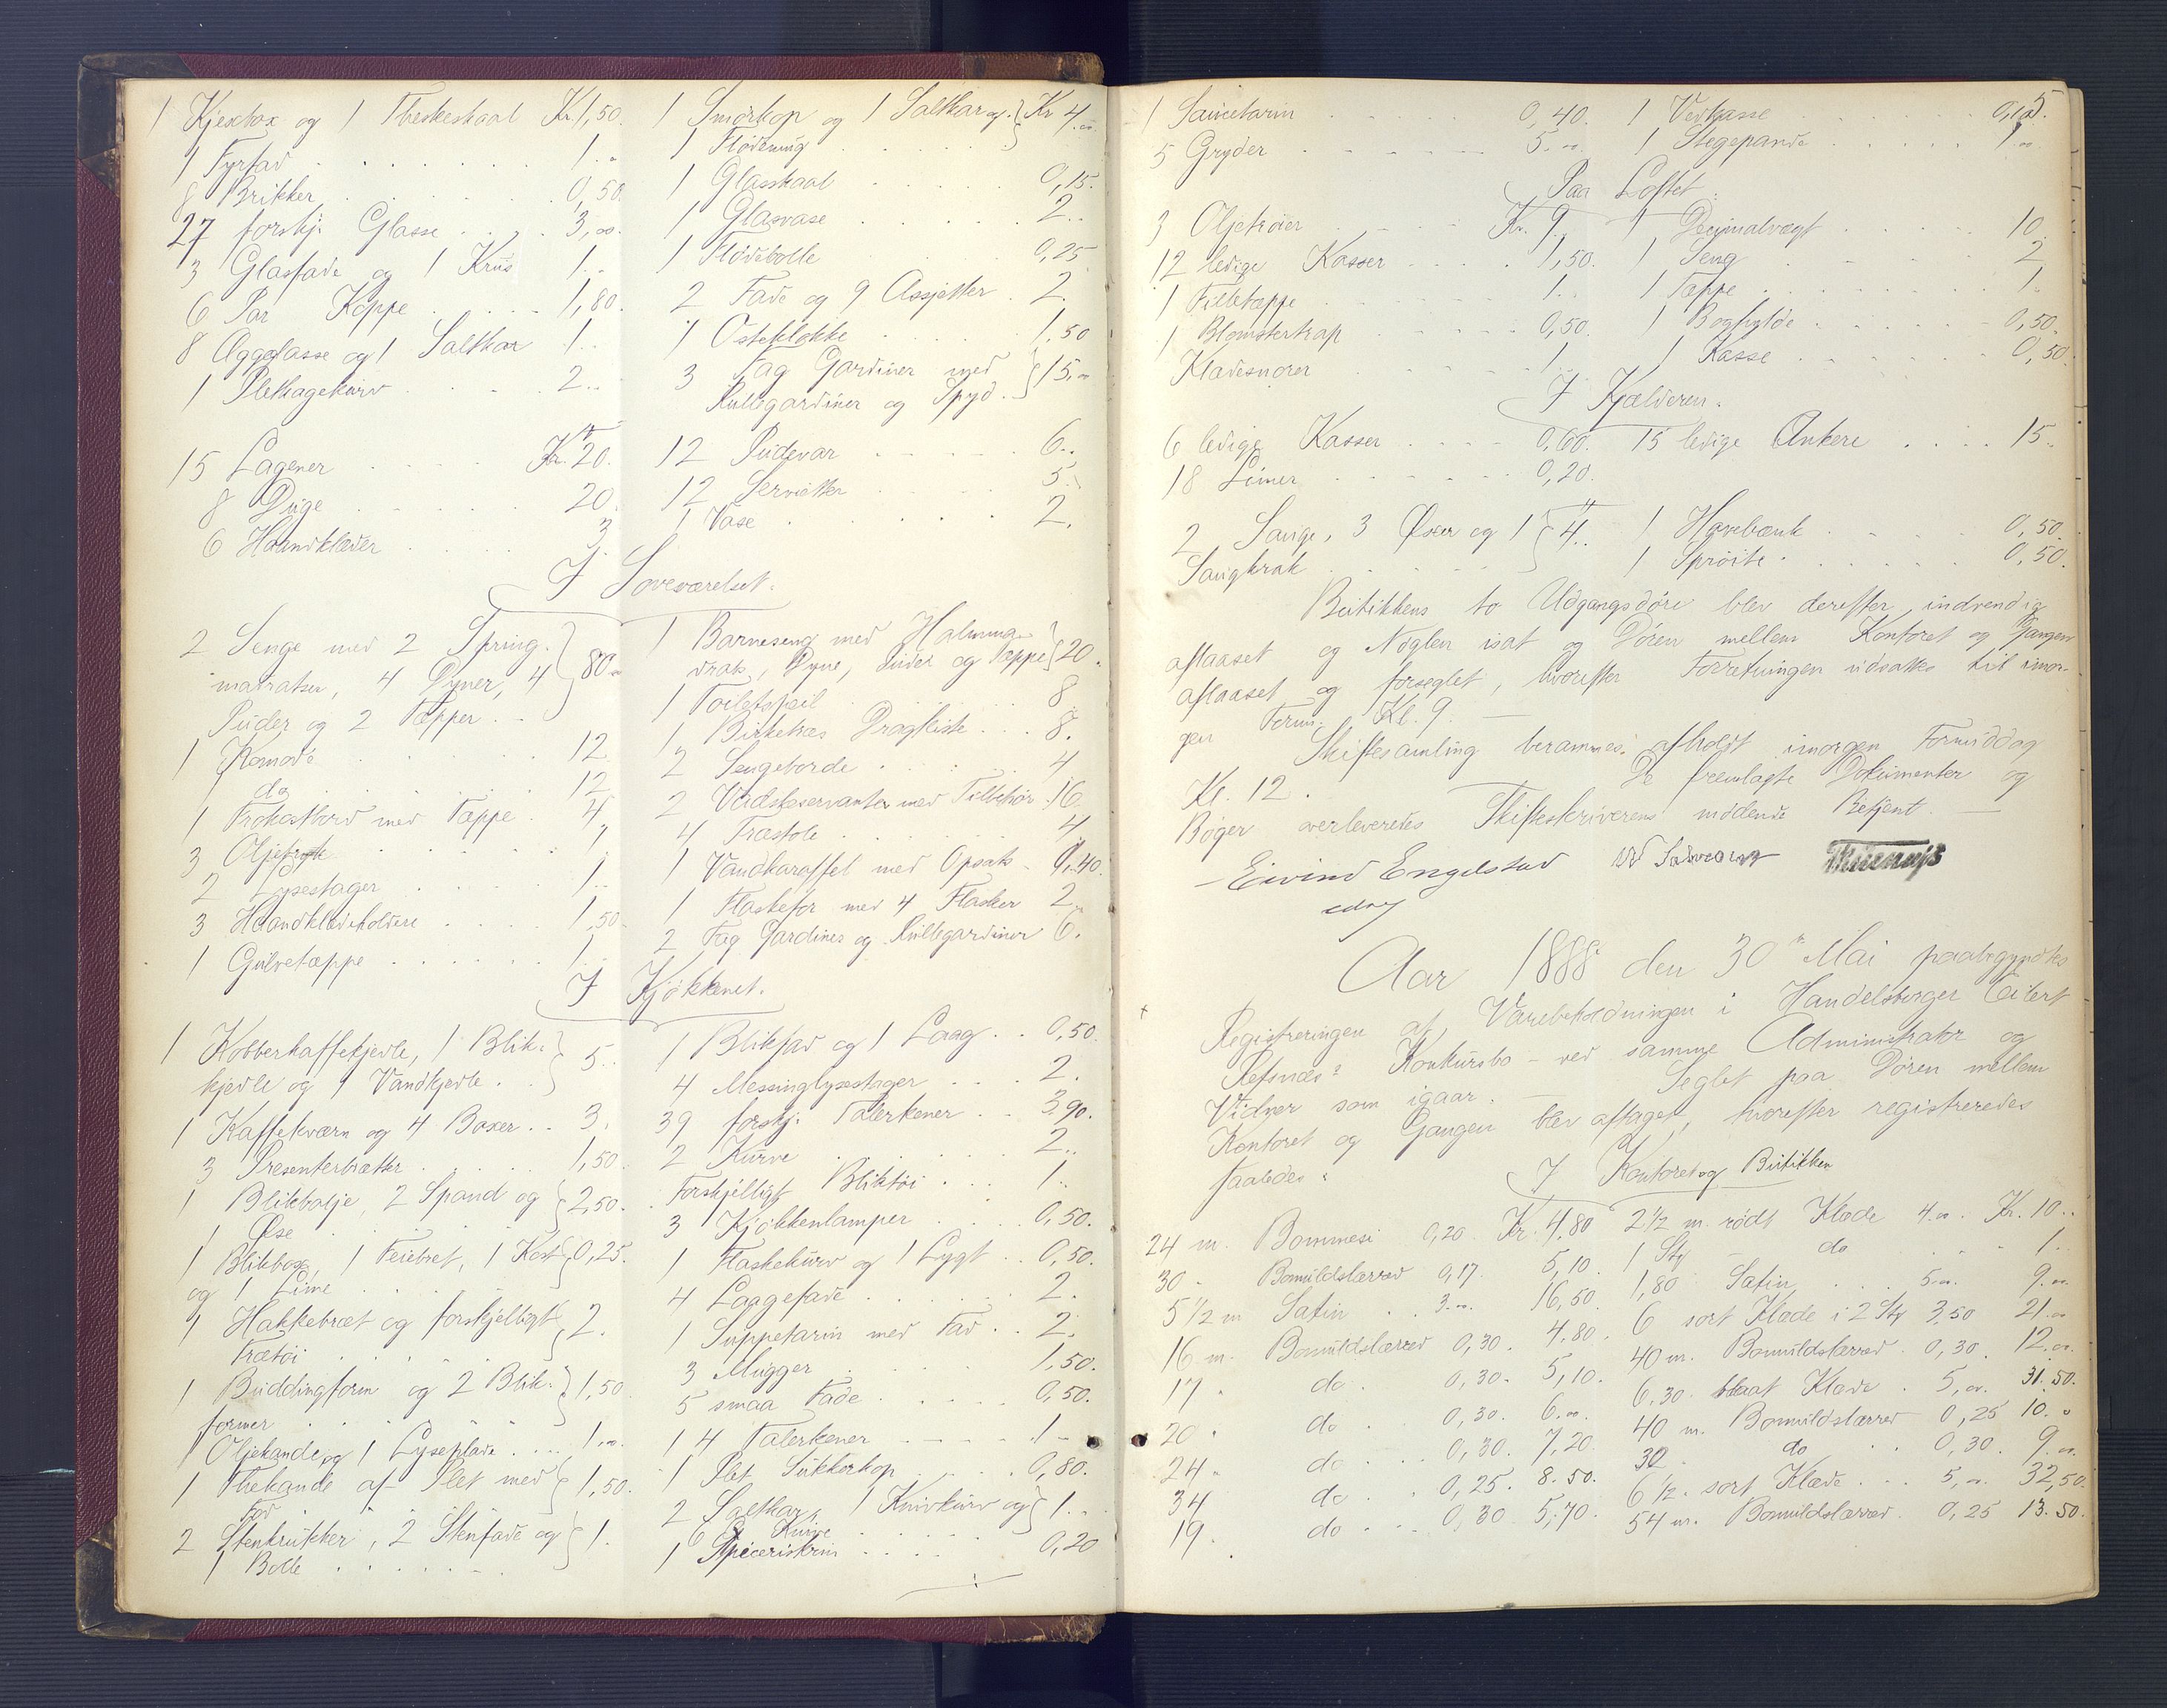 1 Kjexbox og 1 Theskeskaal Kr. 1,50.
1 Fyrfad . . . 1. "
8 Brikker . . . 0,50.
27 forskj. Glasse . . . 3,00.
3 Glasfade og 1 Krus 1. "
6 Par Koppe . . . 1,80.
8 Æggeglasse og 1 Saltkar 1. "
1 Pletkagekurv . . . 2. "
15 Lagener . . . Kr. 20.
8 Duge . . . 20.
6 Haandklæder . . . 3.
1 Smörkop og 1 Saltkar og } Kr 4.00
1 Flödemug . . .
1 Glasskaal . . . 0,15.
1 Glasvase . . . 2. "
1 Flödebolle 0,25
2 Fade og 9 Assjetter . 2.
1 Osteklokke . . . 1,50
3 Fag Gardiner med } 15.00
Rullegardiner og Spyd.
12 Pudevar . . . 6. "
12 Servietter . . . 5.
1 Vase . . . 2.
I Soveværelset.
2 Senge med 2 Spring- } 80.
matratser, 4 Dyner, 4
Puder og 2 Tæpper. -
1 Komode . . . 12
1 do . . . 12.
1 Frokostbord med Tæppe . 4.
3 Oljetryk . . . 1
2 Lysestager . . . 1. "
3 Haandklædeholdere . . . 1,50.
1 Gulvetæppe . . . 1.
1 Barneseng med Halmma- } 20.
drats, Dyne, Puder og Tæppe
1 Toiletspeil . . . 8
1 Birketræs Dragkiste . . . 8.
2 Sengeborde . . . 4
2 Vaskeservanter med Tilbehör . 16.
4 Træstole . . . 4
1 Vandkaraffel med Opsats - 0,40.
1 Flaskefor med 4 Flasker 2.
2 Fag Gardiner og Rullegardiner 6.
I Kjøkkenet.
1 Kobberkaffekjedle, 1 Blik- } 5. "
kjedle og 1 Vandkjedle .
1 Kaffekværn og 4 Boxer . . 3.
3 Presenterbrætter . . . 1,50.
1 Blikbalje, 2 Spand og } 2,50.
1 Øse . . .
1 Blikboxe, 1 Feiebret, 1 Kost } 0,25.
og 1 Lime . . .
1 Hakkebræt og forskjelligt } 2.
Trætøi . . .
1 Buddingform og 2 Blik- } 1,50
former . . .
1 Oljekande og 1 Lyseplade . . . 1.00.
1 Thekande af Plet med } 1,50.
Fad . . .
2 Stenkrukker, 2 Stenfade og } 1.
1 Bolle . . .
1 Blikfad og 1 Laag . . 0,50.
4 Messinglysestager . . . 2.
39 forskj. Talerkener . . 3,90.
2 Kurve . . . 2. "
Forskjelligt Bliktöi . . . 1. "
3 Kjøkkenlamper . . . 0,50.
1 Flaskekurv og 1 Lygt . 0,50.
4 Laagefade . . . 2.
1 Suppetarin med Fad . . 2.
3 Mugger . . . 1,50.
5 smaa Fade . . . 0,50.
14 Talerkener . . . 1 -
1 Plet Sukkerkop . . . 0,80.
2 Saltkar, 1 Knivkurv og } 1. "
6 Knive . . .
1 Speceriskrin . . . 0,20
5
1 Saucetarin . . . 0,40.
5 Gryder . . . 5.00.
1 Vedkasse . . . 0,10.
1 Stegepande . . . 1.00
Paa Loftet.
3 Oljetrøier . . . Kr. 9.
12 ledige Kasser . . . 1,50.
1 Filletæppe . . . 1. "
1 Blomstertrap . . . 0,50.
Klædesnorer . . . 1.
1 Decimalvægt . . . 10.
1 Seng . . . 2
1 Tæppe . . . 1.
1 Boghylde . . . 0,50.
1 Kasse . . . 0,50
I Kjælderen.
6 ledige Kasser . . . 0,60.
18 Limer . . . 0,20.
15 ledige Ankere . . . 15.
2 Sauge, 3 Øxer og 1 } 4. "
Saugkrak . . .
1 Havebænk . . . 0,50.
1 Spröite . . . 0,50.
Butikkens to Udgangsdöre blev derefter indvendig
aflaaset og Nöglen isat og Dören mellem Kontoret og Gangen
aflaaset og forseglet, hvorefter Forretningen udsattes til imor-
gen Form. Kl. 9. —
Skiftesamling berammes afholdt imorgen Formiddag
Kl. 12. De fremlagte Dokumenter og
Bøger overleveredes Skifteskriverens mødende Betjent. —
Eivind Engelstad
Aar 1888 den 30te Mai paabegyndtes
Registreringen af Varebeholdningen i Handelsborger Eilert
Refsnæs's Konkursbo - ved samme Administrator og
Vidner som igaar. — Seglet paa Dören mellem
Kontoret og Gangen blev aftaget, hvorefter registreredes
saaledes:
I Kontoret og Butikken
24 m. Bommesi 0,20. Kr. 4,80
30 " Bomuldslærred 0,17. 5,10.
5 1/2 m Satin . . 3.00. 16,50.
16 m. Bomuldslærred 0,30. 4,80.
17 " do . 0,30. 5,10.
20 " do . 0,30. 6.00.
24 " do . . 0,30. 7,20.
34 do . . 0,25. 8.50.
19 " do . . 0,30 5,70.
2 1/2 m. rödt Klæde 4.00. Kr. 10. "
1 Stk - do . . . 1. "
1,80 Satin . . . 5.00. 9.00.
6 sort Klæde i 2 Stk 3,50 21.00
40 m. Bomuldslærred . 0,30. 12.00.
6,30. blaat Klæde . 5,00. 31.50.
40 m. Bomuldslærred 0,25 10. "
30 do . . 0,30. 9.00.
6 1/2 . sort Klæde . . . 5,00. 32,50.
54 m. Bomuldslærred . 0,25 13.50.